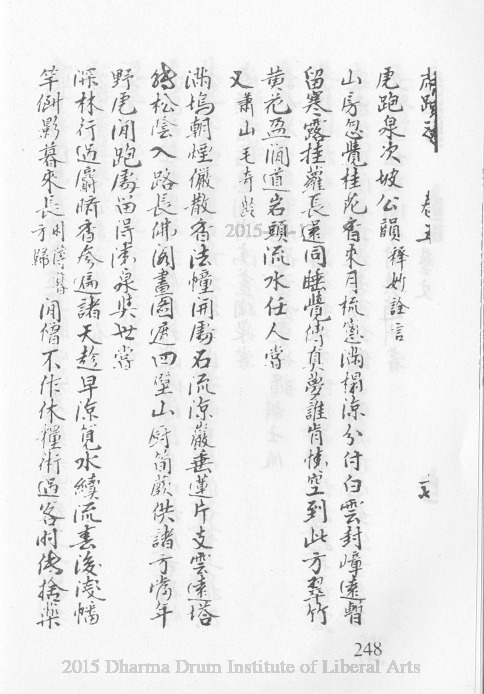 卷五
虎跑泉次坡公韻 釋妙詮言
山房忽覺桂花香來月梳窗滿榻涼分付白雲封嶂遠暫
留寒露挂蘿長還同睡覺傳真夢誰肯情空到此方翠竹
黃花盈澗道岩頭流水任人嘗
又 蕭山毛奇齡
滿塢朝煙儼散香法幢開處石流涼巖垂蓮片支雲遠塔
轉松陰入路長佛閣畫圖遮四壁山廚筍蕨供諸方當年
野虎閒跑處留得清泉與世嘗
深林行過麝臍香參徧諸天趁早涼筧水續流春後澇幡
竿倒影暮來長 方歸 閒僧不作休糧術過客時傳捨藥
248
2015 Dharma Drum Institute of Liberal Arts